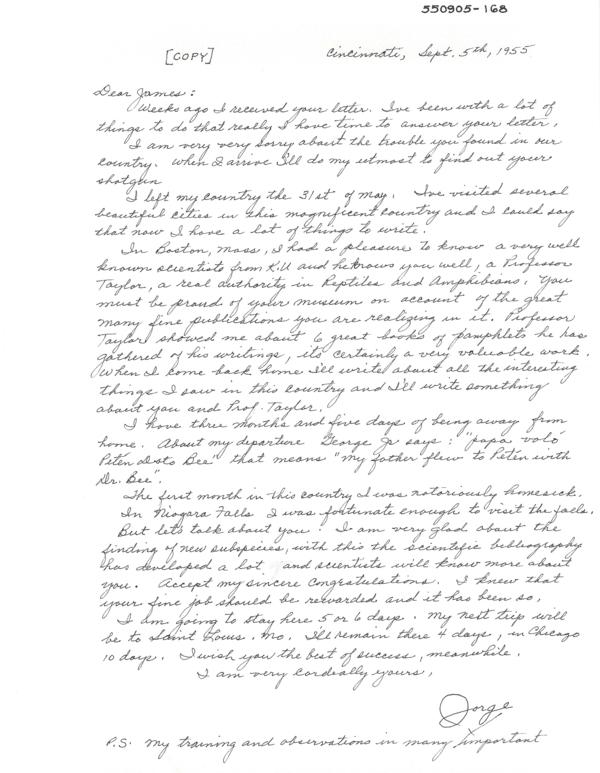 550905-168
[COPY]
Cincinnati, Sept. 5th, 1955
Dear James:
Weeks ago I received your letter. I've been with a lot of
things to do that really I have time to answer your letter.
I am very very sorry about the trouble you found in our
country. When I arrive I'll do my utmost to find out your
shotgun
I left my country the 31st of May. I've visited several
beautiful cities in this magnificent country and I could say
that now I have a lot of things to write.
In Boston, Mass, I had a pleasure to know a very well
known scientists from K.U and he knows you well, a Professor
Taylor, a real authority in Reptiles and Amphibians. You
must be proud of your museum on account of the great
many fine publications you are realizing in it. Professor
Taylor showed me about 6 great books of pamphlets he has
gathered of his writings, it's certainly a very valuable work.
When I come back home I'll write about all the interesting
things I saw in this country and I'll write something
about you and Prof. Taylor.
I have three months and five days of being away from
home. About my departure George Jr says: "papa voló
Petén Doto Bee" that means "my father flew to Petén with
Dr. Bee".
The first month in this country I was notoriously homesick.
In Niagara Falls I was fortunate enough to visit the falls.
But let's talk about you: I am very glad about the
finding of new subspecies, with this the scientific bibliography
has developed a lot and scientists will know more about
you. Accept my sincere congratulations. I knew that
your fine job should be rewarded and it has been so.
I am going to stay here 5 or 6 days. My next trip will
be to Saint Louis, Mo. I'll remain there 4 days, in Chicago
10 days. I wish you the best of success, meanwhile.
I am very cordially yours,
Jorge
P.S. My training and observations in many important